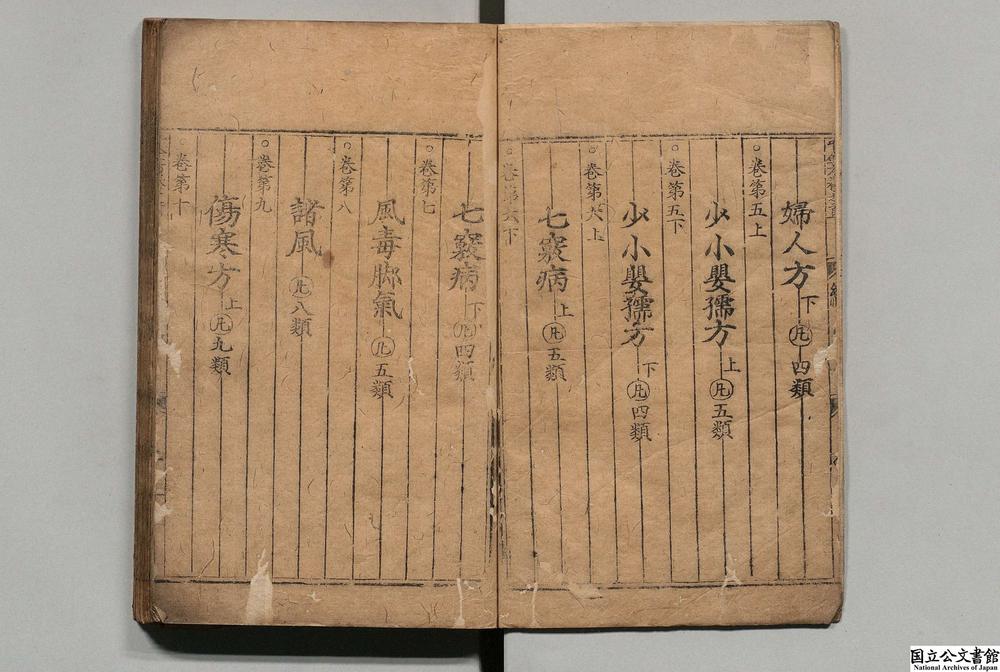 婦人方 下 凡 四類
○卷第五上
少小嬰孺方 上 凡 五類
○卷第五下
少小嬰孺方 下 凡 四類
○卷第六上
七竅病 上 凡 五類
○卷第六下
七竅病 下 凡 四類
○卷第七
風毒脚氣 凡 五類
○卷第八
諸風 凡 八類
○卷第九
傷寒方 上 凡 九類
○卷第十
国立公文書館
National Archives of Japan